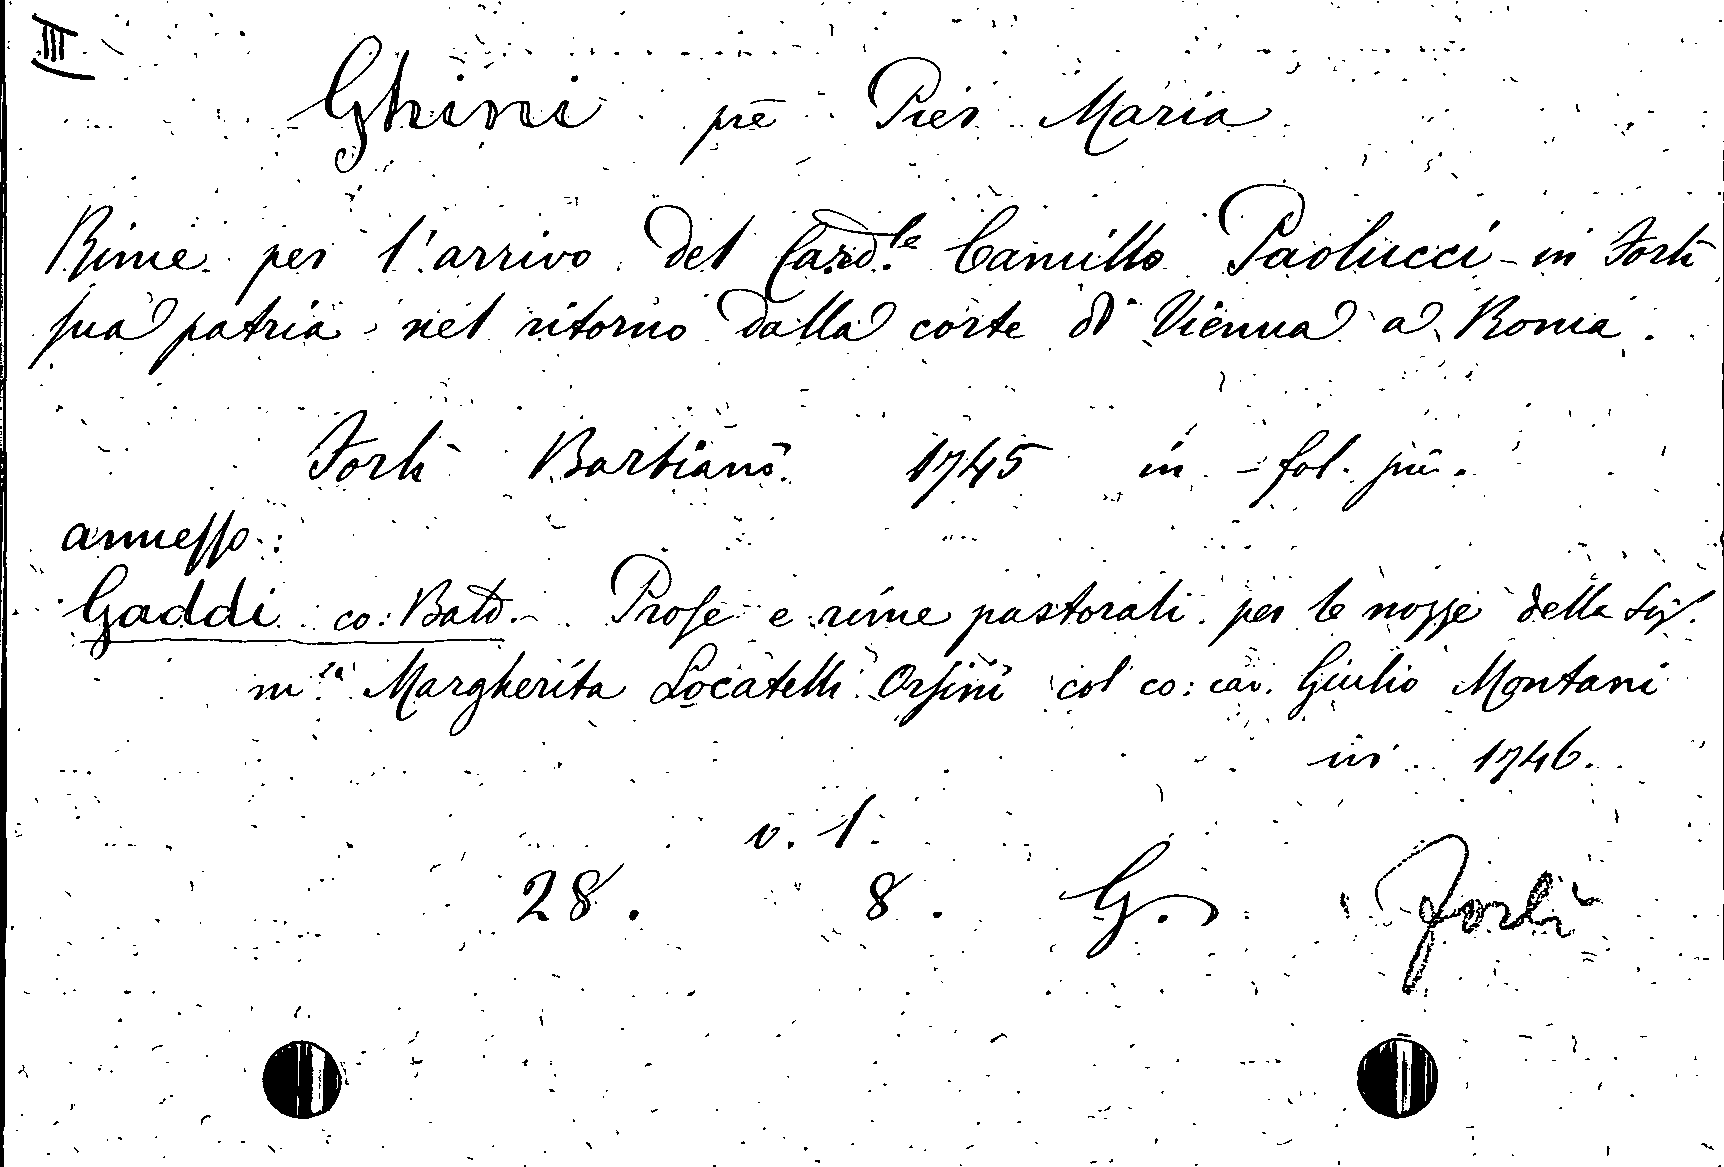 III
Ghini prē Pier Maria
Rime per l'arrivo del Card.le Camillo Paolucci in Forlì
sua patria nel ritorno dalla corte di Vienna a Roma.
Forlì Barbiano. 1745 in-fol. pic.
annesso:
Gaddi co: Bald. Prose e rime pastorali per le nozze della Sig.
m.ra Margherita Locatelli Orsini col co: cav. Giulio Montani
ivi 1746.
v. 1.
28. 8. G. Forlì